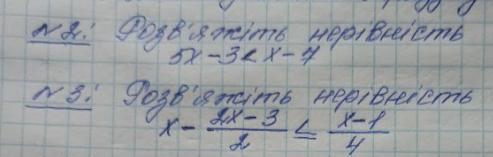 №2: Розв'яжіть нерівність
5x-3<x-7
№3: Розв'яжіть нерівність
x - \frac{2x-3}{2} ≤ \frac{x-1}{4}